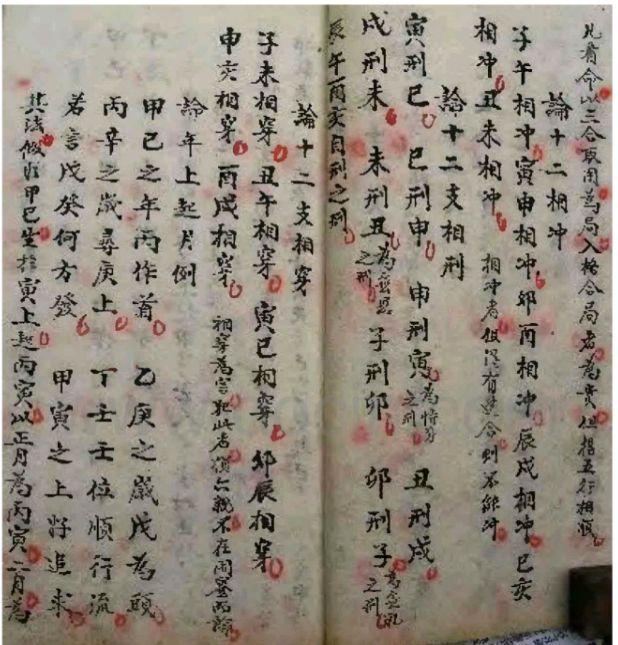 凡看命以三合取用為局入格合局者為貴但揩五行相順
論十二相冲
子午相冲寅申相冲卯酉相冲辰戌相冲巳亥
相冲丑未相冲 相冲者但深有其合則不能冲
論十二支相刑
寅刑巳 巳刑申 申刑寅為恃勢之刑 丑刑戌
戌刑未 未刑丑為無恩之刑 子刑卯 卯刑子為無礼之刑
辰午酉亥自刑之刑
論十二支相穿
子未相穿丑午相穿寅巳相穿卯辰相穿
申亥相穿酉戌相穿 相穿為害犯此者六親不在
論年上起月例
甲己之年丙作首 乙庚之歲戊為頭
丙辛之歲尋庚上 丁壬壬位順行流
若言戊癸何方發 甲寅之上好追求
其法假如甲己生於寅上起丙寅以正月為丙寅二月為